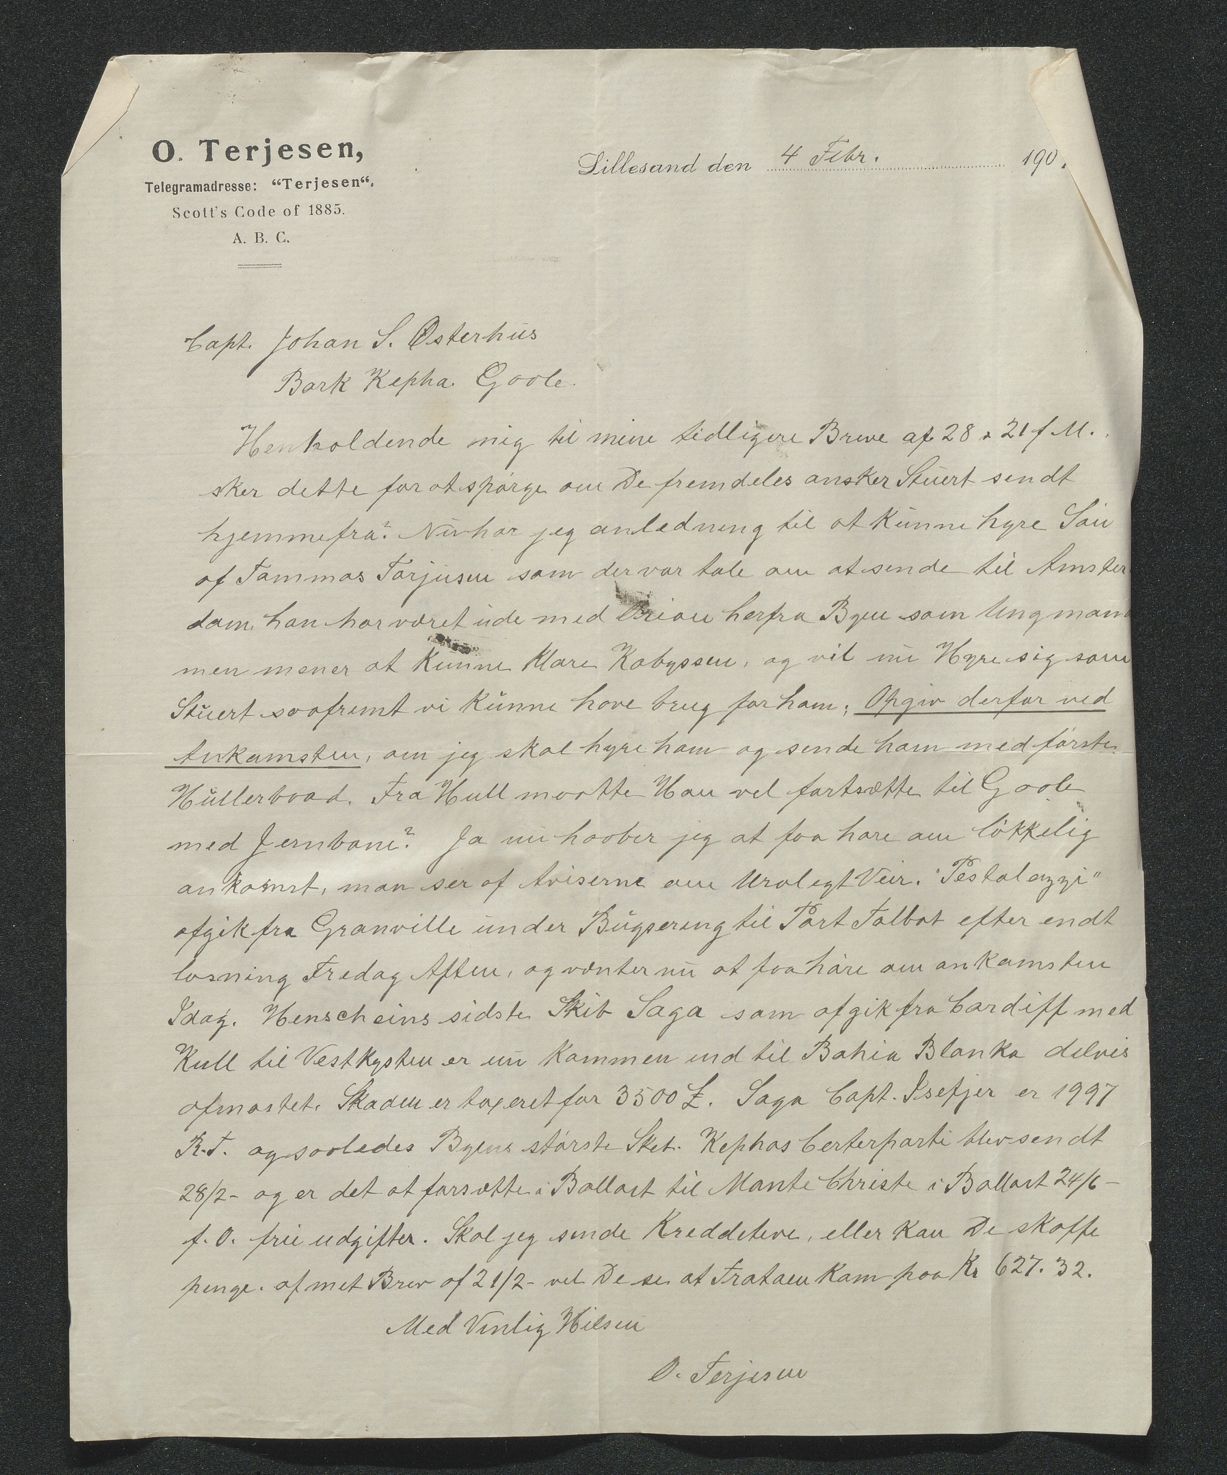 O. Terjesen,
Telegramadresse: “Terjesen“.
Scott's Code of 1885.
A. B. C.
Lillesand den 4 Febr. 190.
Capt. Johan S. Osterhus
Bark Kepha. Goole.
Henholdende mig til mine tidligere Breve af 28 & 21 f M.
sker dette for at spørge om De fremdeles ønsker Stuert sendt
hjemmefra? Nu har jeg anledning til at kunne hyre Søn
af Tommas Torjusen som der var tale om at sende til Amster
dam, han har været ude med herfra Byen som Ungmand
men mener at kunne klare Kabyssen, og vil nu Hyre sig som
Stuert saafremt vi kunne have brug for ham; Opgiv derfor ved
Ankomsten, om jeg skal hyre ham og sende ham med første
Hullerbaad. Fra Hull maatte Han vel fortsætte til Goole
med Jernbane? Ja nu haaber jeg at faa høre om løkkelig
ankomst, man ser af Aviserne om Uroligt Veir. "Pestalozzi"
afgik fra Granville under Bugsering til Port Talbot efter endt
losning Fredag Aften, og venter nu at faa høre om ankomsten
Idag. Henscheins sidste Skib Saga som afgik fra Cardiff med
Kull til Vestkysten er nu kommen ind til Bahia Blanka delvis
afmastet. Skaden er taxeret for 3500 £. Saga Capt. Isefjer er 1997
R.T. og saaledes Byens største Sket. Kephas Certerparti blev sendt
28/2- og er det at forsætte i Ballast til Mante Christe i Ballast 24/6-
f. O. frie udgifter. Skal jeg sende Kreddeteve, eller kan De skaffe
penge. af met Brev af 21/2- vel De se at Trataen kom paa Kr 627.32.
Med Vinlig Hilsen
O. Terjesen